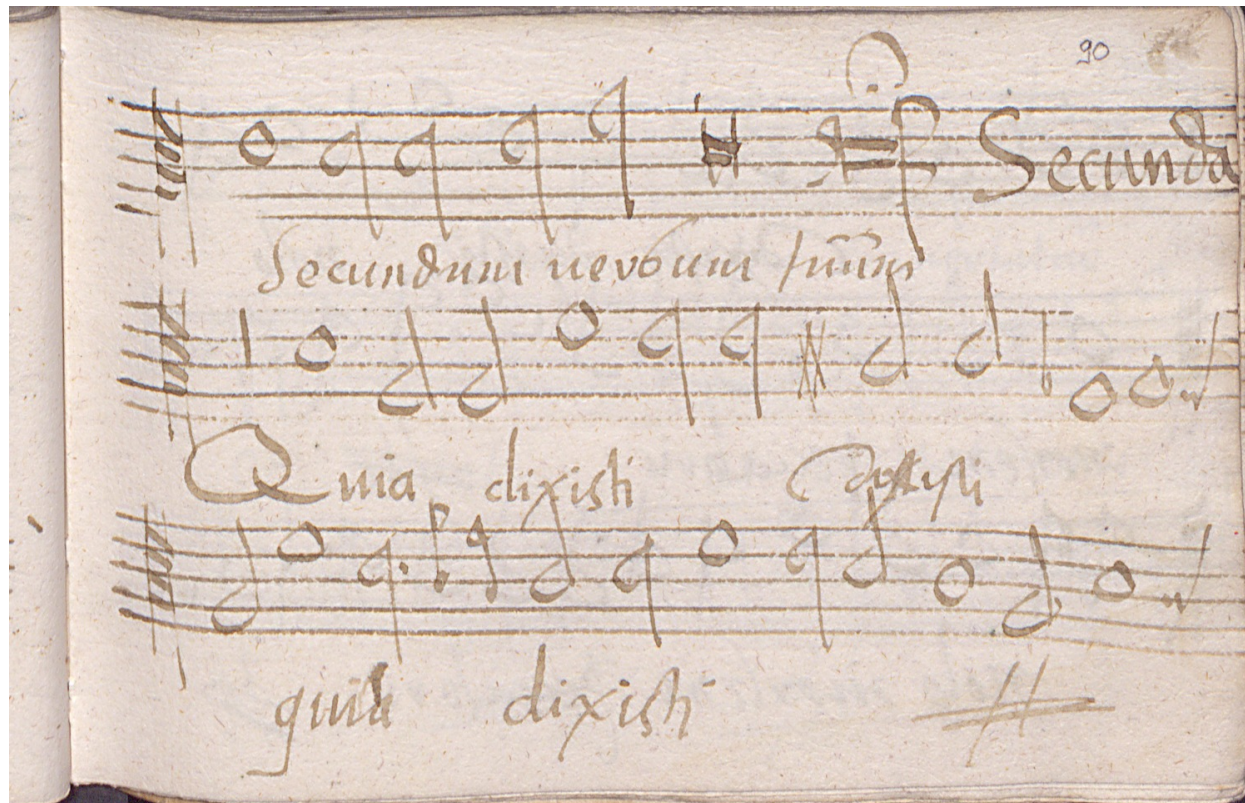 90
Secunda
Secundum uerbum tuum
Quia dixisti dixisti
quia dixisti